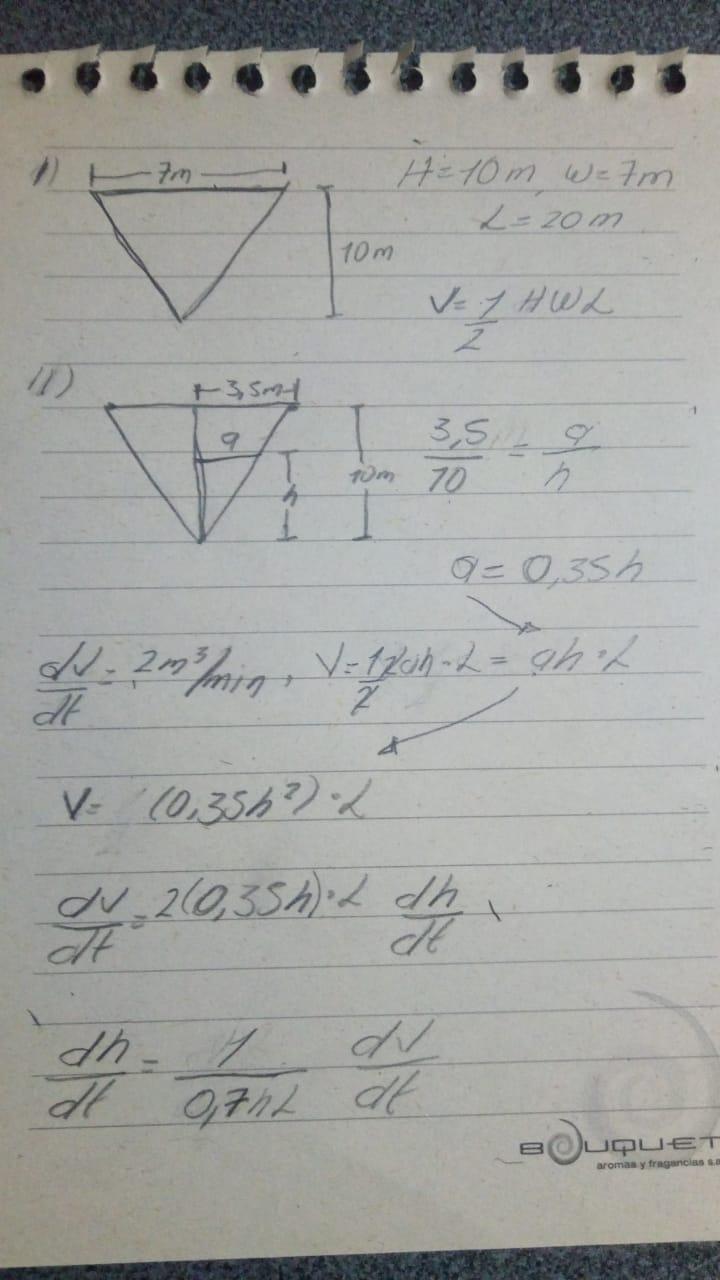 I) 7m H=10m, W=7m
L=20m
10m
V=1/2 HWL
II) 3,5m
a h 10m 3,5/10 = a/h
a=0,35h
dV/dt = 2m³/min, V=1/2 2ah·L = ah·L
V= (0,35h²)·L
dV/dt = 2(0,35h)·L dh/dt
dh/dt = 1/0,7hL dV/dt
BOUQUET
aromas y fragancias s.a